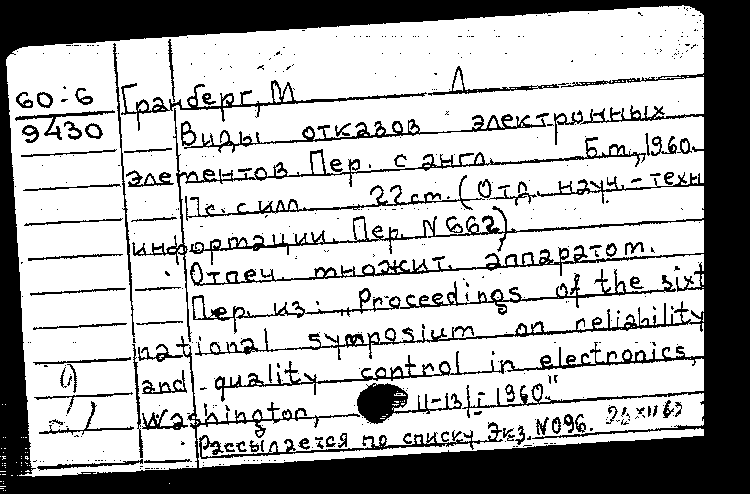 60:6
9430
Гранберг, М Л
Виды отказов электронных
элементов. Пер. с англ. Б.м., 1960.
22 cm. (Отд. науч.-техн
информации. Пер. N 662).
Отпеч. множит. аппаратом.
Пер. из: „Proceedings of the sixt
national symposium on reliability
and quality control in electronics,
Washington, 11-13/I 1960."
Рассылается по списку. Экз. N096.
2